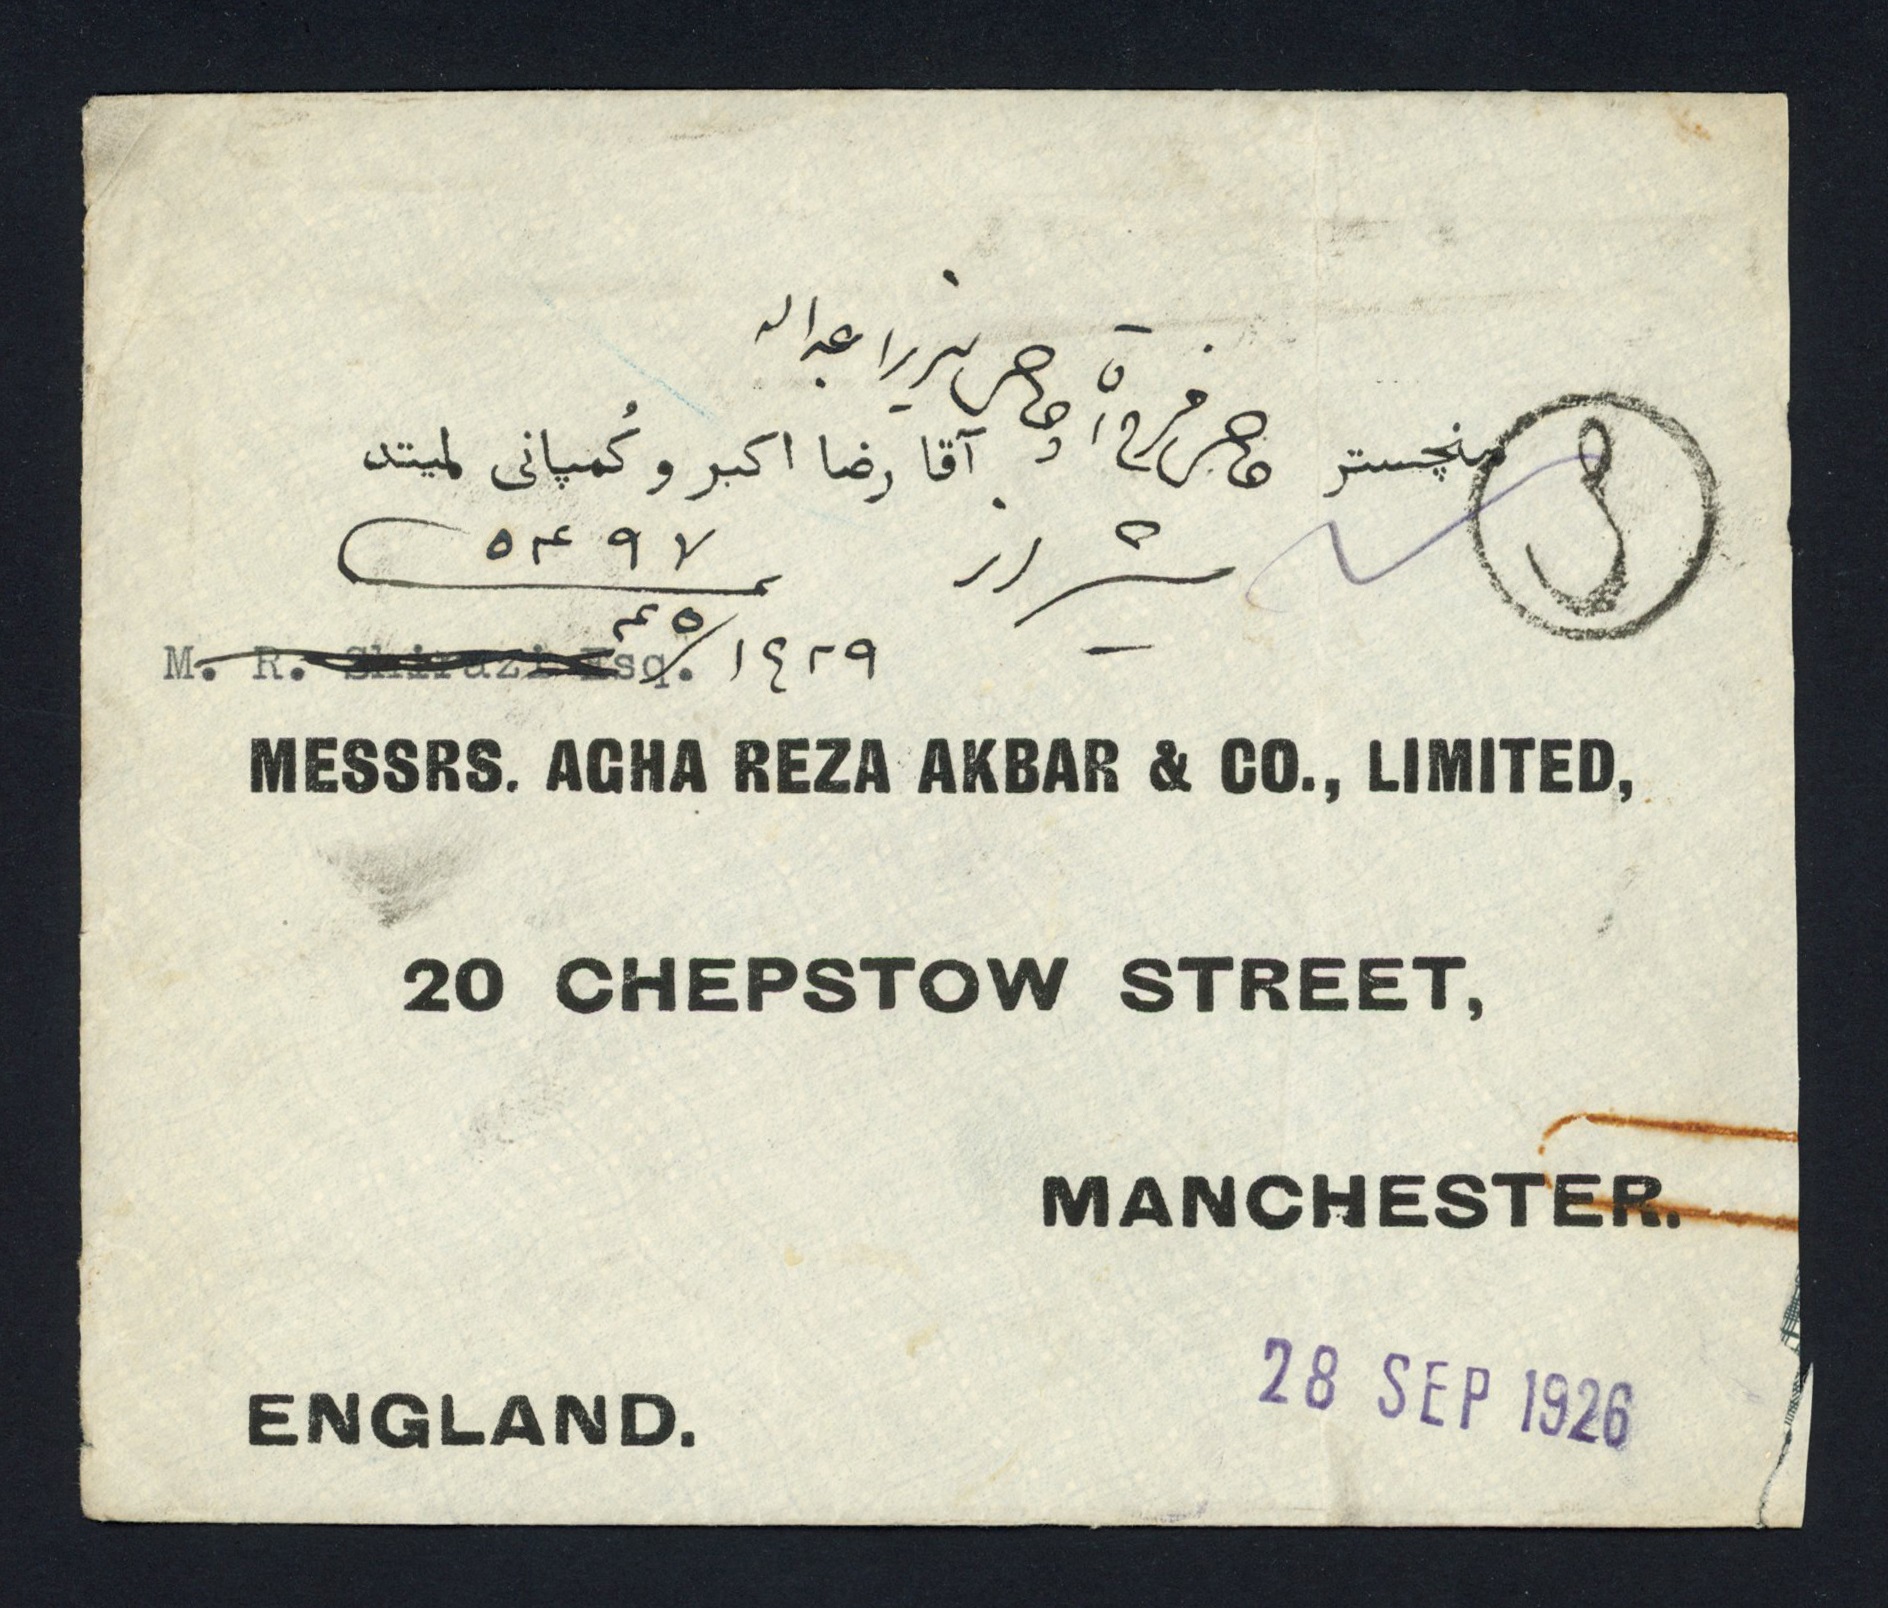 حاجی میرزا عبداله
منچستر آقا رضا اکبر و کُمپانی لمیتد
شیراز
۵۴۹۷
۴۵/۱۴۲۹
M. R. Shirazi Esq.
MESSRS. AGHA REZA AKBAR & CO., LIMITED,
20 CHEPSTOW STREET,
MANCHESTER.
ENGLAND.
28 SEP 1926